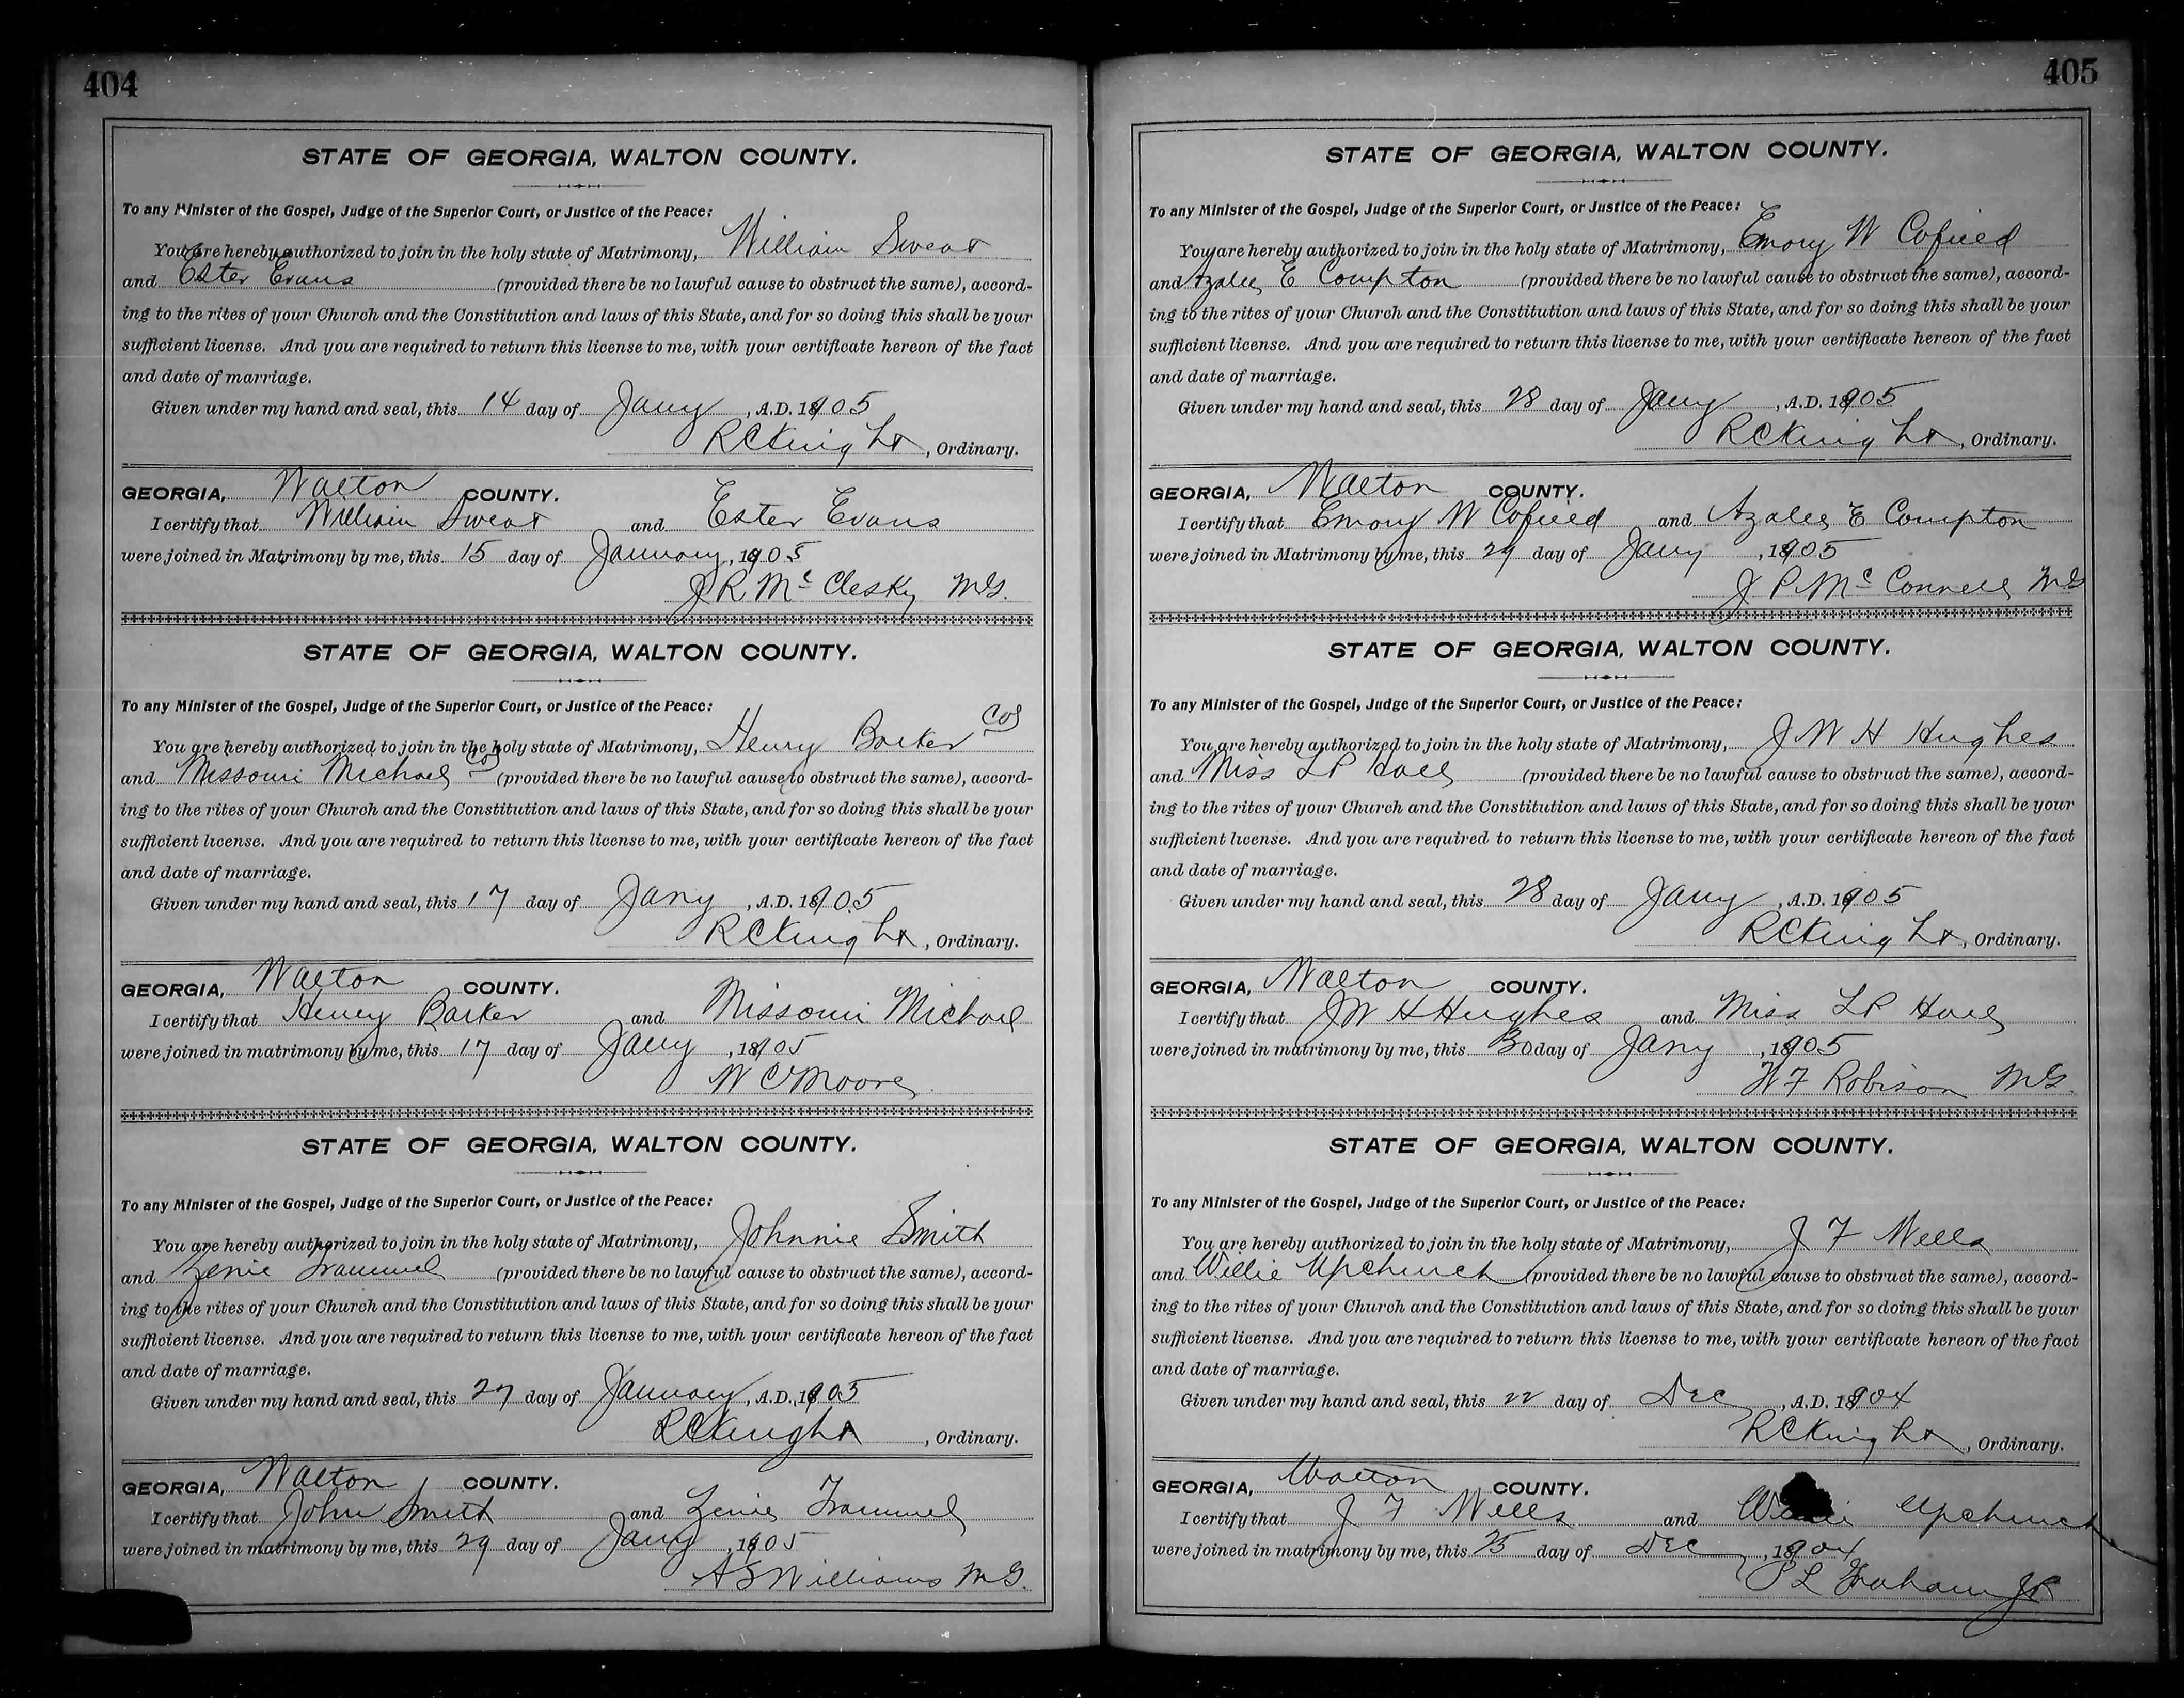 404
STATE OF GEORGIA, WALTON COUNTY.
To any Minister of the Gospel, Judge of the Superior Court, or Justice of the Peace:
You are hereby authorized to join in the holy state of Matrimony, William Sweat
and Ester Evans (provided there be no lawful cause to obstruct the same), accord-
ing to the rites of your Church and the Constitution and laws of this State, and for so doing this shall be your
sufficient license. And you are required to return this license to me, with your certificate hereon of the fact
and date of marriage.
Given under my hand and seal, this 14 day of Jany, A.D. 1905
R C Knight, Ordinary.
GEORGIA, Walton COUNTY.
I certify that William Sweat and Ester Evans
were joined in Matrimony by me, this 15 day of January, 1905
J R McClesky MG.
STATE OF GEORGIA, WALTON COUNTY.
To any Minister of the Gospel, Judge of the Superior Court, or Justice of the Peace:
You are hereby authorized to join in the holy state of Matrimony, Henry Barker Col
and Missouri Michael Col (provided there be no lawful cause to obstruct the same), accord-
ing to the rites of your Church and the Constitution and laws of this State, and for so doing this shall be your
sufficient license. And you are required to return this license to me, with your certificate hereon of the fact
and date of marriage.
Given under my hand and seal, this 17 day of Jany, A.D. 1905
R C Knight, Ordinary.
GEORGIA, Walton COUNTY.
I certify that Henry Barker and Missouri Michael
were joined in matrimony by me, this 17 day of Jany, 1905
W C Moore
STATE OF GEORGIA, WALTON COUNTY.
To any Minister of the Gospel, Judge of the Superior Court, or Justice of the Peace:
You are hereby authorized to join in the holy state of Matrimony, Johnnie Smith
and Zenie Trammel (provided there be no lawful cause to obstruct the same), accord-
ing to the rites of your Church and the Constitution and laws of this State, and for so doing this shall be your
sufficient license. And you are required to return this license to me, with your certificate hereon of the fact
and date of marriage.
Given under my hand and seal, this 27 day of January, A.D., 1905
R C Knight, Ordinary.
GEORGIA, Walton COUNTY.
I certify that John Smith and Zenie Trammel
were joined in matrimony by me, this 29 day of Jany, 1905
A S Williams MG.
405
STATE OF GEORGIA, WALTON COUNTY.
To any Minister of the Gospel, Judge of the Superior Court, or Justice of the Peace:
You are hereby authorized to join in the holy state of Matrimony, Emory W Cofield
and Azalee E Compton (provided there be no lawful cause to obstruct the same), accord-
ing to the rites of your Church and the Constitution and laws of this State, and for so doing this shall be your
sufficient license. And you are required to return this license to me, with your certificate hereon of the fact
and date of marriage.
Given under my hand and seal, this 28 day of Jany, A.D. 1905
R C Knight, Ordinary.
GEORGIA, Walton COUNTY.
I certify that Emory W Cofield and Azalee E Compton
were joined in Matrimony by me, this 29 day of Jany, 1905
J P McConnell MG
STATE OF GEORGIA, WALTON COUNTY.
To any Minister of the Gospel, Judge of the Superior Court, or Justice of the Peace:
You are hereby authorized to join in the holy state of Matrimony, J W H Hughes
and Miss L P (provided there be no lawful cause to obstruct the same), accord-
ing to the rites of your Church and the Constitution and laws of this State, and for so doing this shall be your
sufficient license. And you are required to return this license to me, with your certificate hereon of the fact
and date of marriage.
Given under my hand and seal, this 28 day of Jany, A.D. 1905
R C Knight, Ordinary.
GEORGIA, Walton COUNTY.
I certify that J W H Hughes and Miss L P
were joined in matrimony by me, this 30 day of Jany, 1905
W F Robison MG.
STATE OF GEORGIA, WALTON COUNTY.
To any Minister of the Gospel, Judge of the Superior Court, or Justice of the Peace:
You are hereby authorized to join in the holy state of Matrimony, J F Wells
and Willie Upchurch (provided there be no lawful cause to obstruct the same), accord-
ing to the rites of your Church and the Constitution and laws of this State, and for so doing this shall be your
sufficient license. And you are required to return this license to me, with your certificate hereon of the fact
and date of marriage.
Given under my hand and seal, this 22 day of Dec, A.D. 1904
R C Knight, Ordinary.
GEORGIA, Walton COUNTY.
I certify that J F Wells and Willie Upchurch
were joined in matrimony by me, this 25 day of Dec, 1904
P L Graham JP